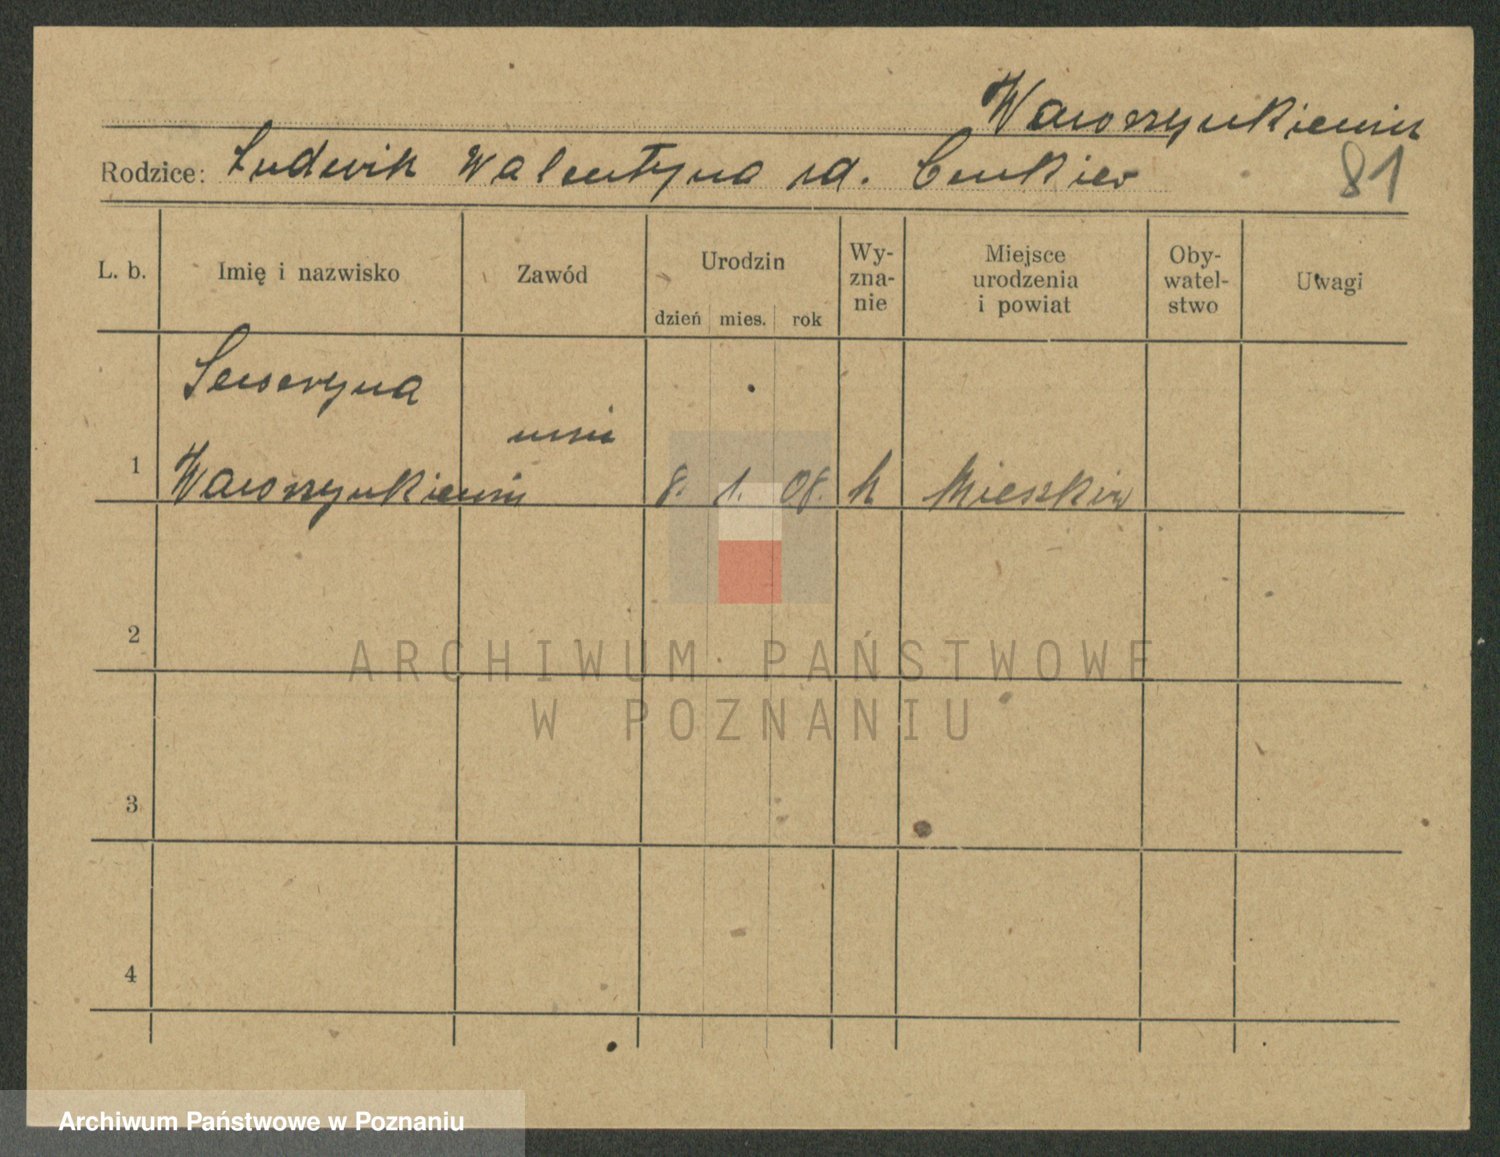 Wawrzynkiewicz
Rodzice: Ludwik Walentyna zd.
81
L. b. Imię i nazwisko Zawód Urodzin dzień mies. rok Wy-zna-nie Miejsce urodzenia i powiat Oby-watel-stwo Uwagi
Seweryna
1 Wawrzynkiewicz 8. 1. 08. k Mieszków
2
ARCHIWUM PAŃSTWOWE
W POZNANIU
3
4
Archiwum Państwowe w Poznaniu